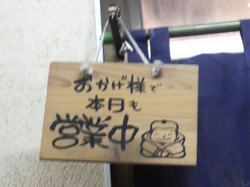 おかげ様で
本日も
営業中